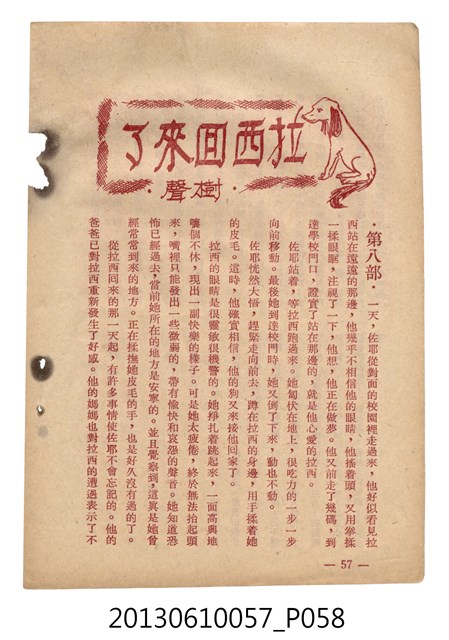 拉西回來了
·樹聲·
·第八部· 一天，佐耶從對面的校園裡走過來，他好似看見拉
西站在遠遠的那邊，他幾乎不相信他的眼睛，他搖着頭，又用拳揉
一揉眼睛，注視了一下，他想，他正在做夢。他又前走了幾碼，到
達學校門口，證實了站在那邊的，就是他心愛的拉西。
佐耶站着，等拉西跑過來。她匐伏在地上，很吃力的一步一步
向前移動。最後她到達校門時，她又倒了下來，動也不動。
佐耶恍然大悟，趕緊走向前去，蹲在拉西的身邊，用手揉着她
的皮毛。這時，他確實相信，他的狗又來接他回家了。
拉西的眼睛是很靈敏很機警的。她掙扎着跳起來，一面高興地
嚷個不休，現出一副快樂的樣子。可是她太疲倦，終於無法抬起頭
來，嘴裡只能發出一些微弱的，帶有愉快和哀怨的聲音。她知道恐
怖已經過去，當前她所在的地方是安寧的。並且覺察到，這眞是她曾
經常常到來的地方。正在揉撫她皮毛的手，也是好久沒有過的了。
從拉西回來的那一天起，有許多事情使佐耶不會忘記的。他的
爸爸已對拉西重新發生了好感。他的媽媽也對拉西的遭遇表示了不
— 57 —
20130610057_P058